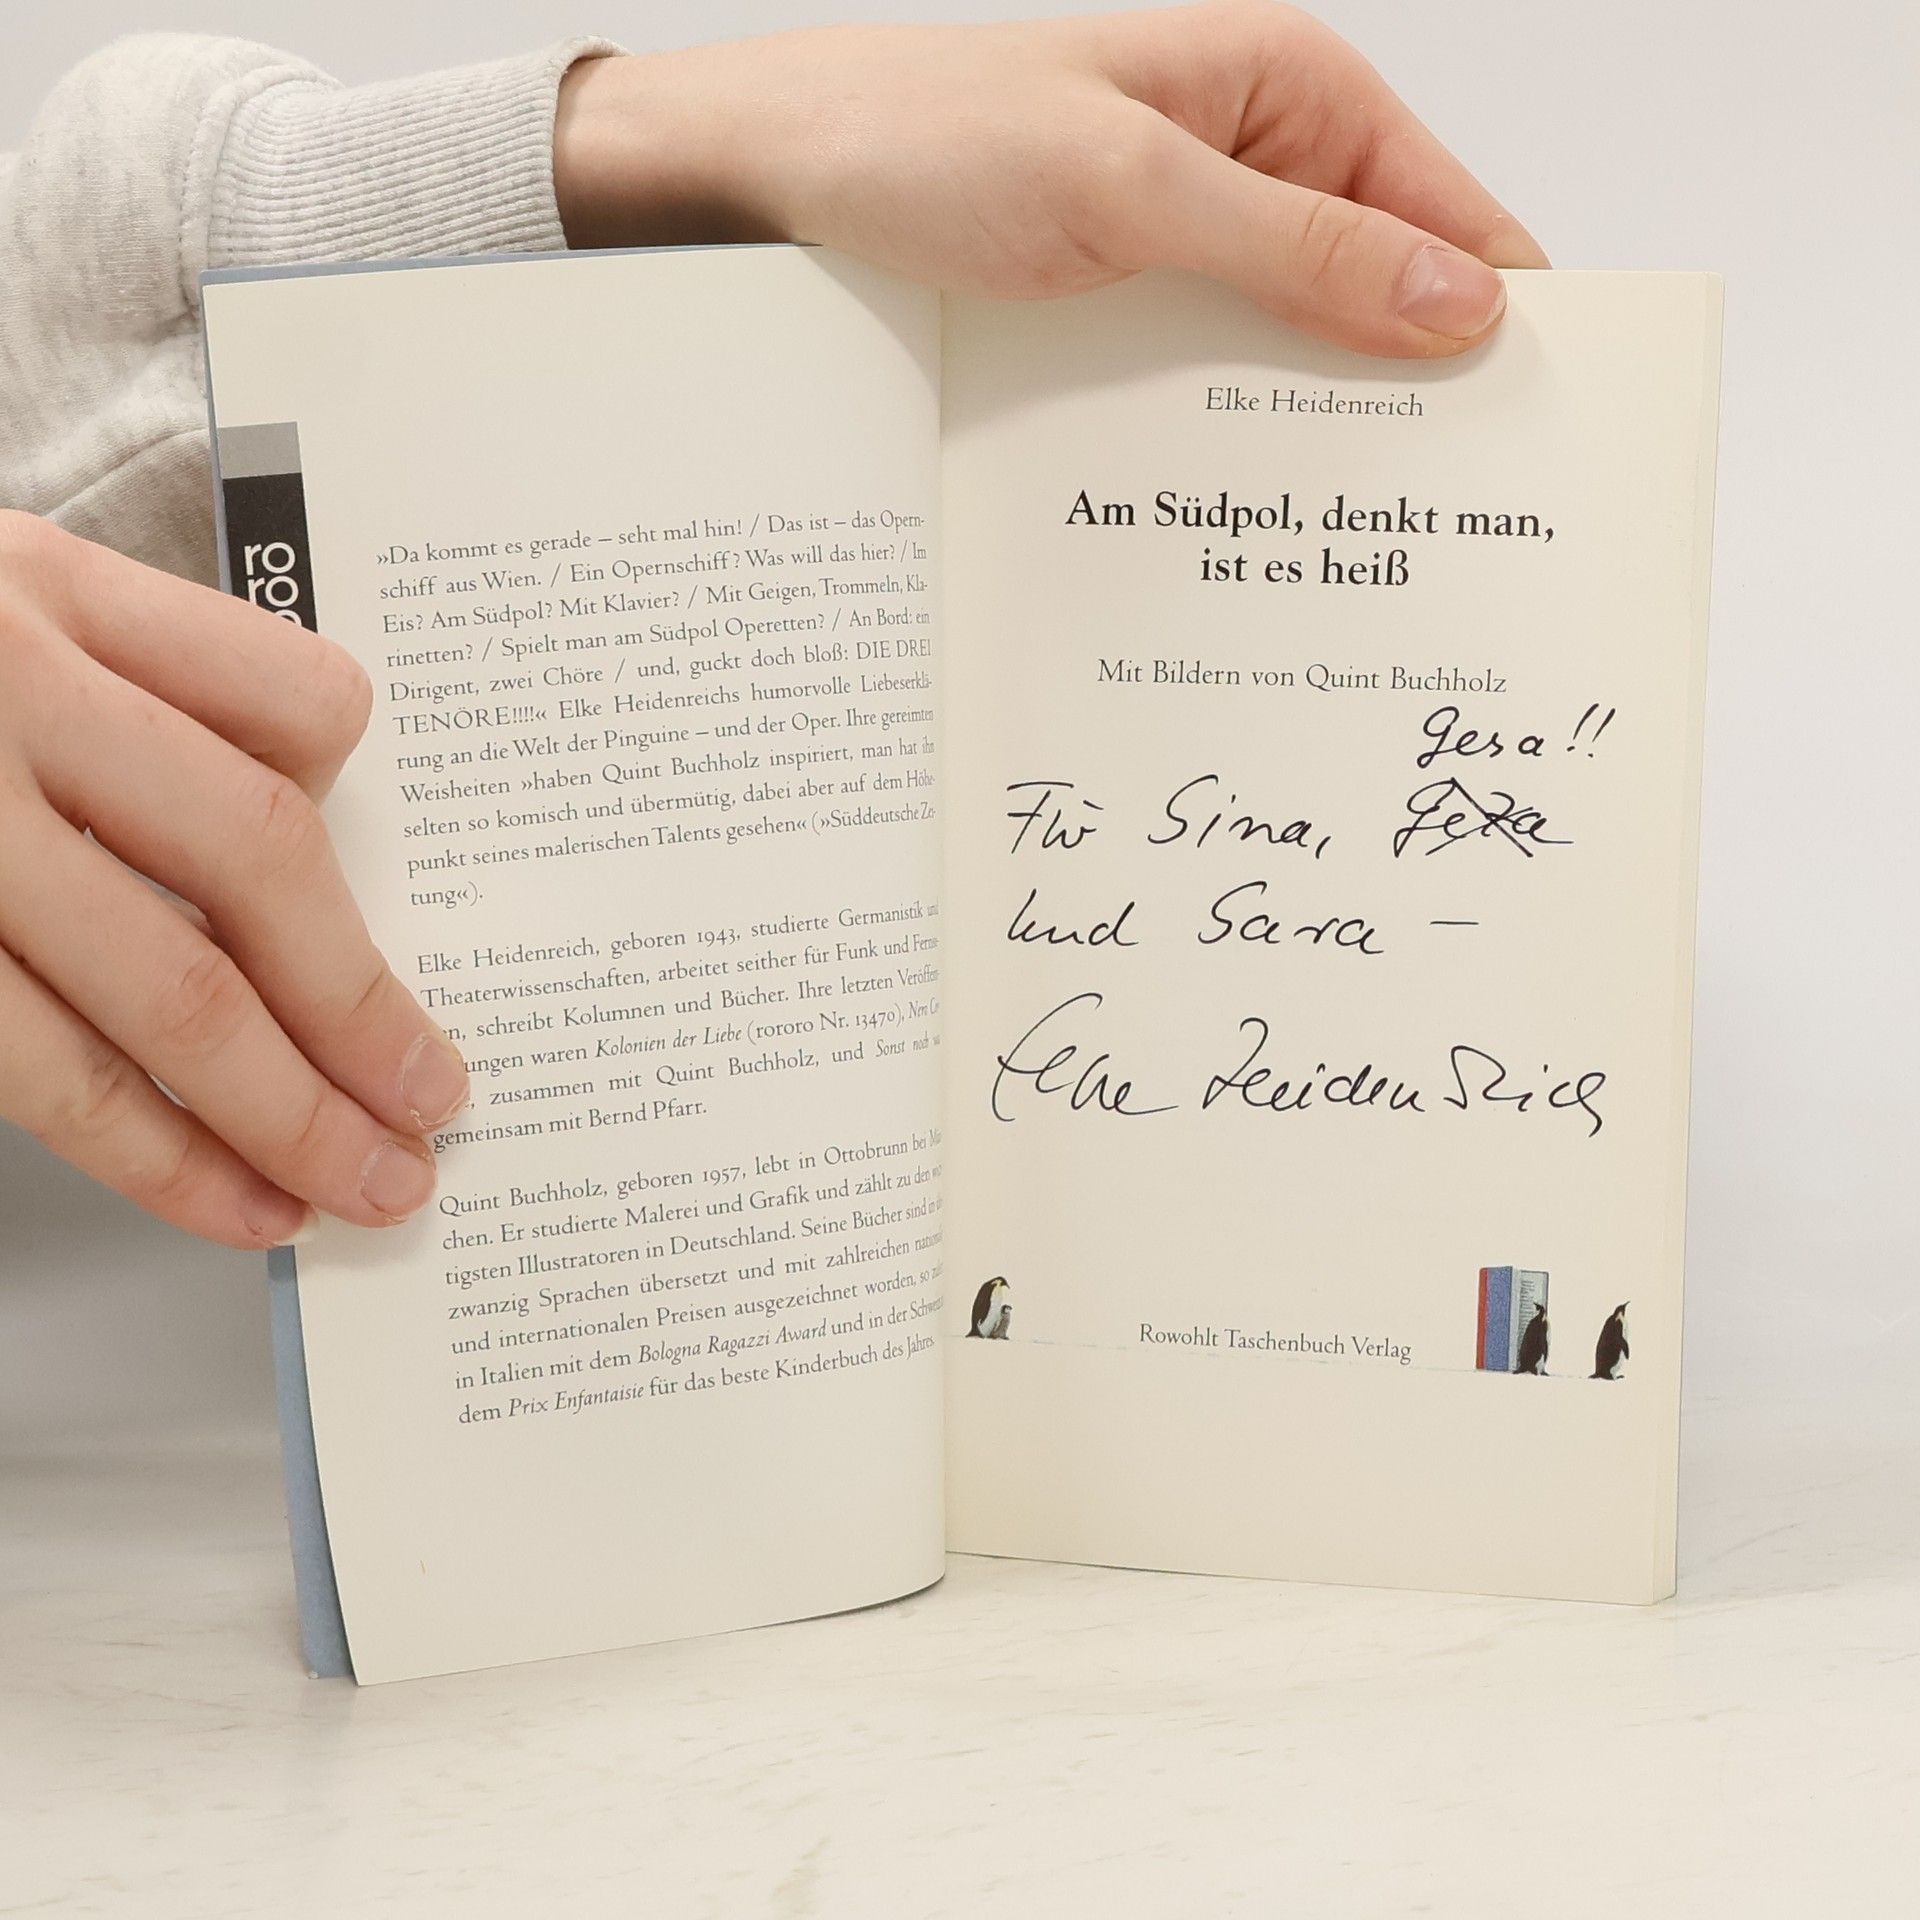 ro
ro
»Da kommt es gerade – seht mal hin! / Das ist – das Opern-
schiff aus Wien. / Ein Opernschiff? Was will das hier? / Im
Eis? Am Südpol? Mit Klavier? / Mit Geigen, Trommeln, Kla-
rinetten? / Spielt man am Südpol Operetten? / An Bord: ein
Dirigent, zwei Chöre / und, guckt doch bloß: DIE DREI
TENÖRE!!!!« Elke Heidenreichs humorvolle Liebeserklä-
rung an die Welt der Pinguine – und der Oper. Ihre gereimten
Weisheiten »haben Quint Buchholz inspiriert, man hat ihn
selten so komisch und übermütig, dabei aber auf dem Höhe-
punkt seines malerischen Talents gesehen« (»Süddeutsche Zei-
tung«).
Elke Heidenreich, geboren 1943, studierte Germanistik und
Theaterwissenschaften, arbeitet seither für Funk und Fernse-
n, schreibt Kolumnen und Bücher. Ihre letzten Veröffent-
ungen waren Kolonien der Liebe (rororo Nr. 13470), Nero Cor-
, zusammen mit Quint Buchholz, und Sonst noch was
gemeinsam mit Bernd Pfarr.
Quint Buchholz, geboren 1957, lebt in Ottobrunn bei Mün-
chen. Er studierte Malerei und Grafik und zählt zu den wich-
tigsten Illustratoren in Deutschland. Seine Bücher sind in über
zwanzig Sprachen übersetzt und mit zahlreichen nationalen
und internationalen Preisen ausgezeichnet worden, so zuletzt
in Italien mit dem Bologna Ragazzi Award und in der Schweiz mit
dem Prix Enfantaisie für das beste Kinderbuch des Jahres.
Elke Heidenreich
Am Südpol, denkt man,
ist es heiß
Mit Bildern von Quint Buchholz
Gesa!!
Für Sina, Geza
und Sara –
Elke Heidenreich
Rowohlt Taschenbuch Verlag